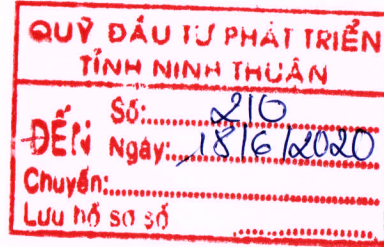 QUỸ ĐẦU TƯ PHÁT TRIỂN
TỈNH NINH THUẬN
ĐẾN
Số: 210
Ngày: 18/6/2020
Chuyển:
Lưu hồ sơ số